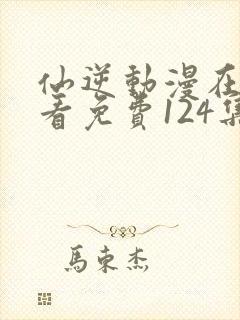 仙逆動漫在
看免費124集
馬東杰